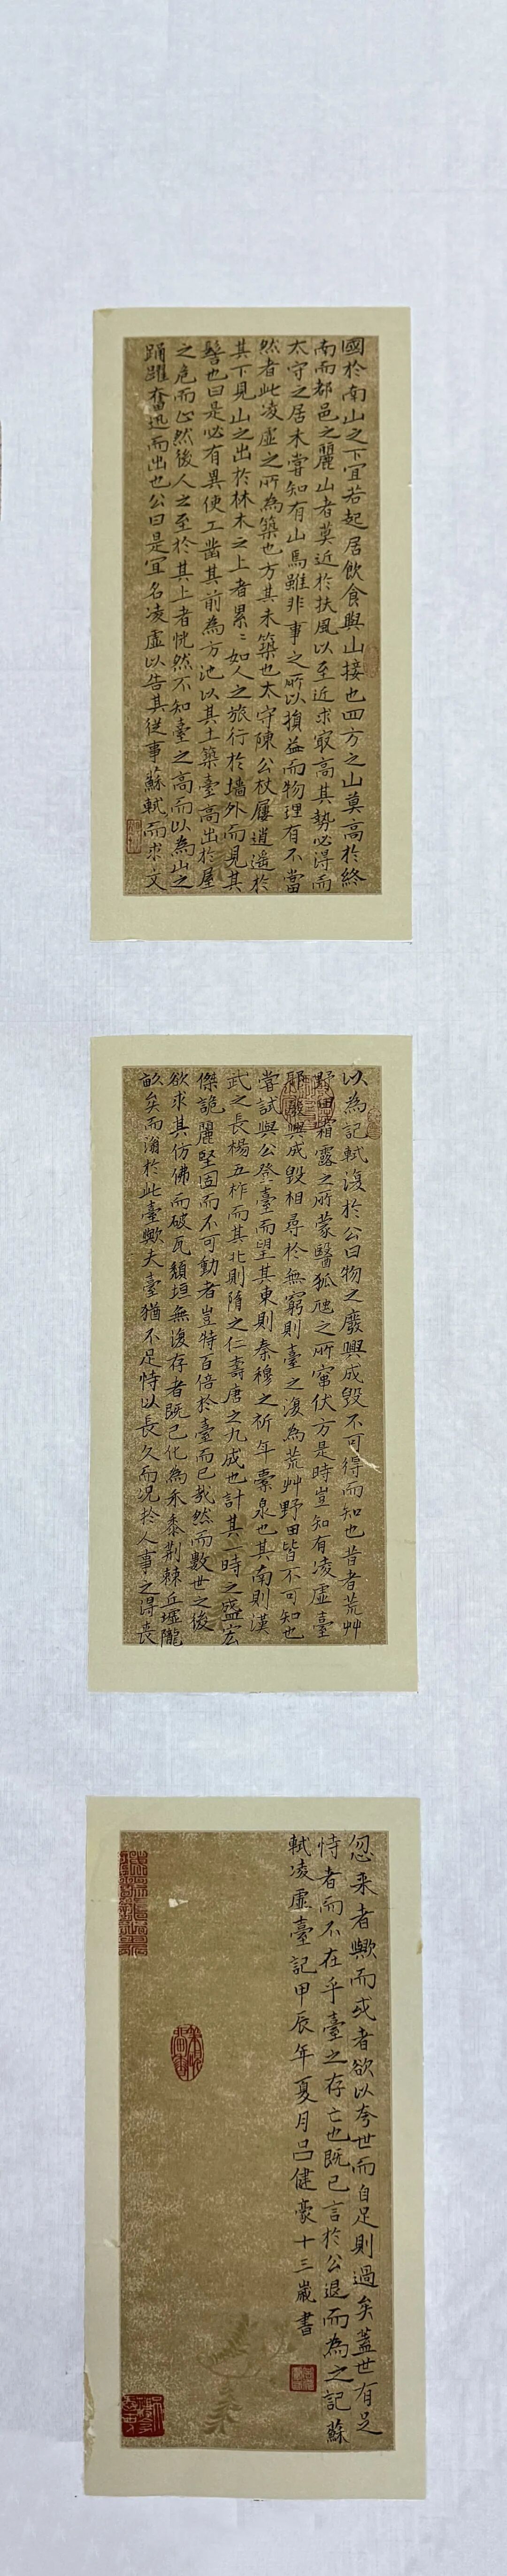 國於南山之下宜若起居飲食與山接也四方之山莫高於終
南而都邑之麗山者莫近於扶風以至近求最高其勢必得而
太守之居未嘗知有山焉雖非事之所以損益而物理有不當
然者此凌虛之所為築也方其未築也太守陳公杖屨逍遙於
其下見山之出於林木之上者累〻如人之旅行於墻外而見其
髻也曰是必有異使工凿其前為方池以其土築臺高出於屋
之危而止然後人之至於其上者恍然不知臺之高而以為山之
踊躍奮迅而出也公曰是宜名凌虛以告其從事蘇軾而求文
以為記軾復於公曰物之廢興成毀不可得而知也昔者荒艸
野田霜露之所蒙翳狐虺之所竄伏方是時豈知有凌虛臺
耶廢興成毀相尋於無窮則臺之復為荒艸野田皆不可知也
嘗試與公登臺而望其東則秦穆之祈年橐泉也其南則漢
武之長楊五柞而其北則隋之仁壽唐之九成也計其一時之盛宏
傑詭麗堅固而不可動者豈特百倍於臺而已哉然而數世之後
欲求其仿佛而破瓦頹垣無復存者既已化為禾黍荊棘丘墟隴
畝矣而滀於此臺歟夫臺猶不足恃以長久而况於人事之得丧
忽来者歟而或者欲以夸世而自足則過矣蓋世有足
恃者而不在乎臺之存亡也既已言於公退而為之記蘇
軾凌虛臺記甲辰年夏月吕健豪十三歲書